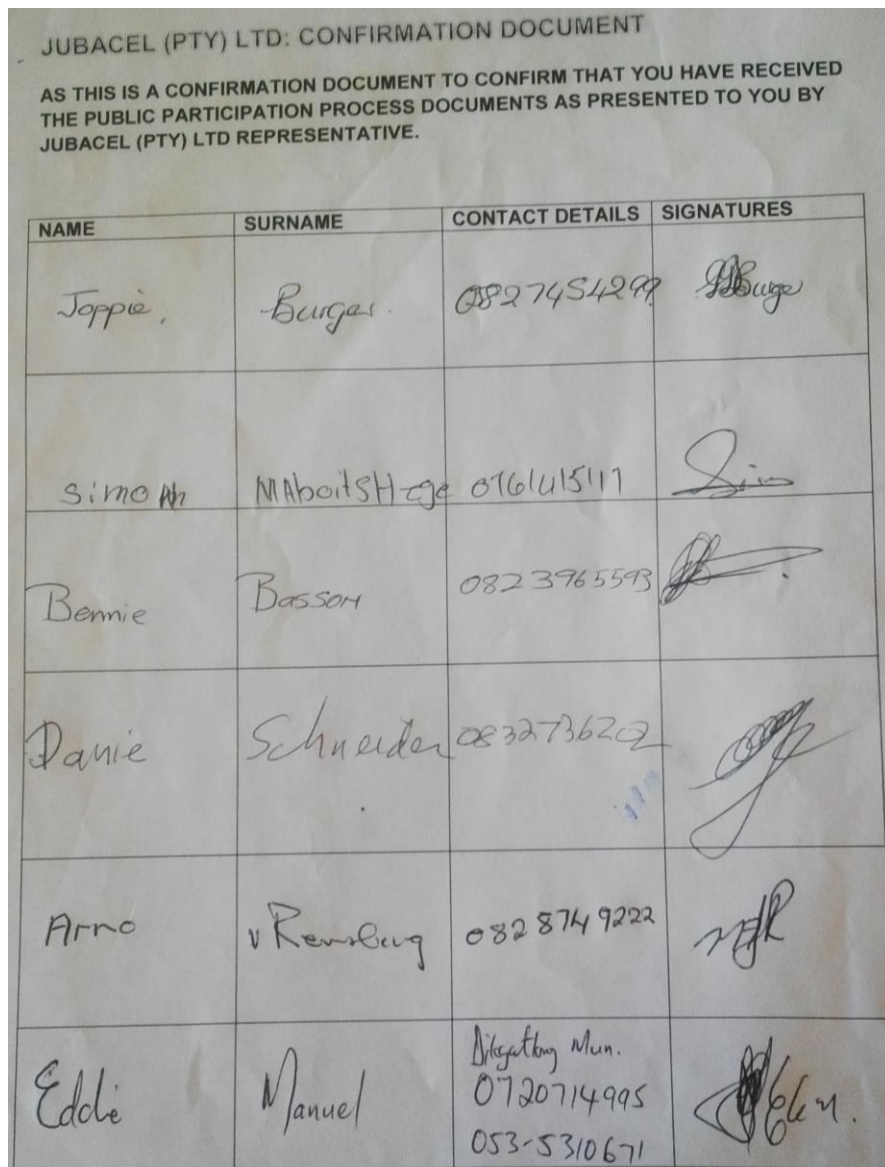 JUBACEL (PTY) LTD: CONFIRMATION DOCUMENT
AS THIS IS A CONFIRMATION DOCUMENT TO CONFIRM THAT YOU HAVE RECEIVED
THE PUBLIC PARTICIPATION PROCESS DOCUMENTS AS PRESENTED TO YOU BY
JUBACEL (PTY) LTD REPRESENTATIVE.
NAME SURNAME CONTACT DETAILS SIGNATURES
Joppie, Burger. 0827454299
Simon
Bennie Basson 0823965593
Danie Schneider 0832736202
Arno v Rensburg 0828749222
Mun.
Eddie Manuel 0720714995
053-5310671